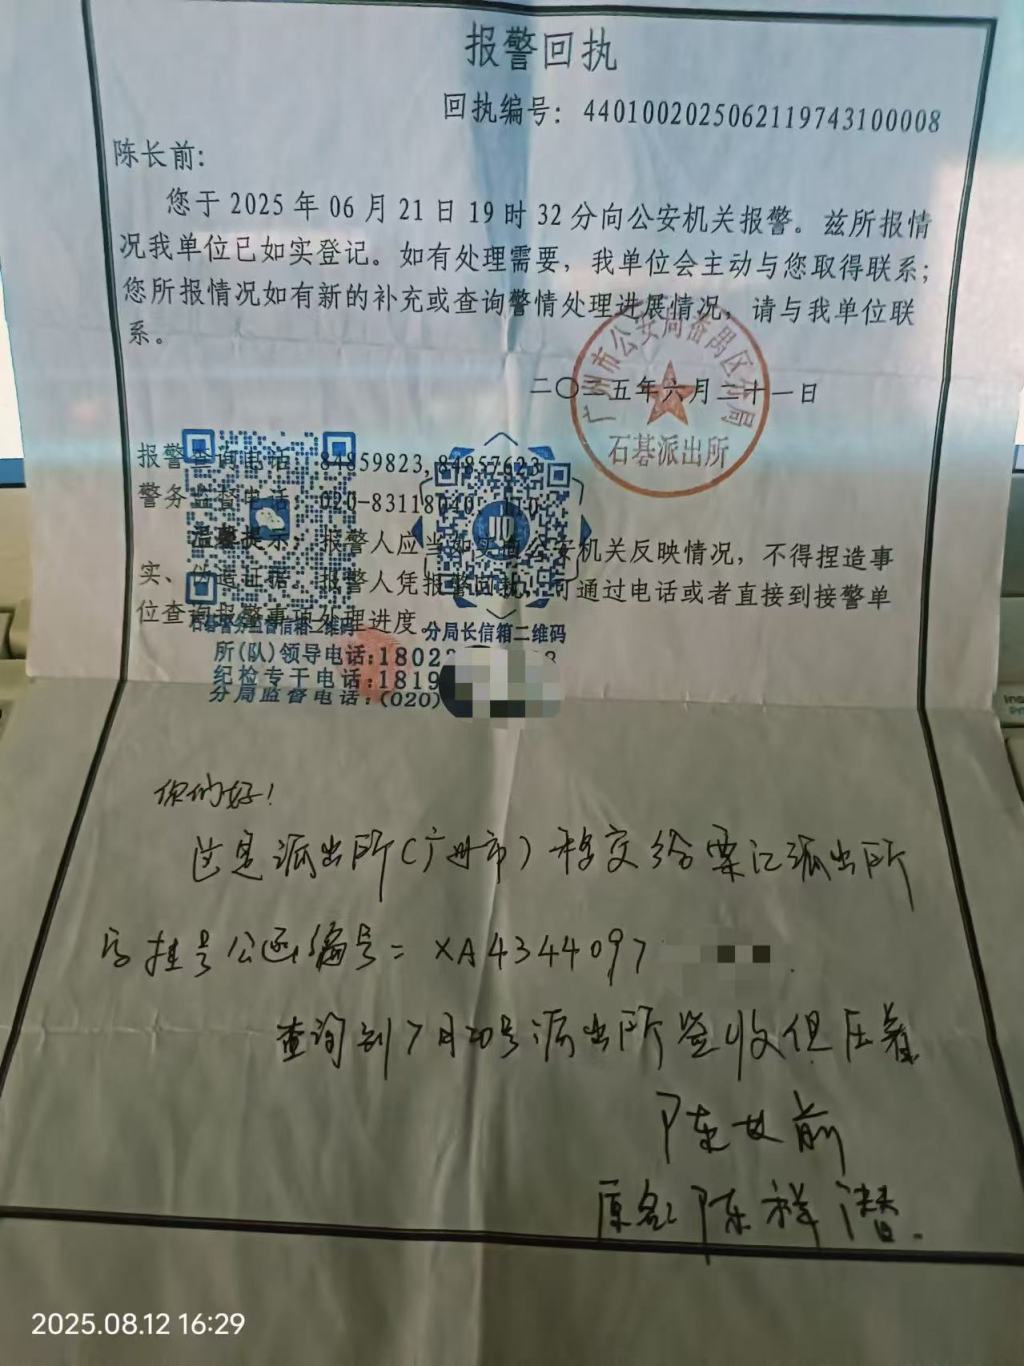 报警回执
回执编号：4401002025062119743100008
陈长前：
您于 2025 年 06 月 21 日 19 时 32 分向公安机关报警。兹所报情
况我单位已如实登记。如有处理需要，我单位会主动与您取得联系；
您所报情况如有新的补充或查询警情处理进展情况，请与我单位联
系。
二〇二五年六月二十一日
广州市公安局番禺区分局
石碁派出所
报警查询电话：84859823,84857623
警务监督电话：020-83118040、110
温馨提示：报警人应当如实向公安机关反映情况，不得捏造事
实、伪造证据。报警人凭报警回执，可通过电话或者直接到接警单
位查询报警事项处理进度。
石碁警务监督信箱二维码
分局长信箱二维码
所(队)领导电话:1802
纪检专干电话:1819
分局监督电话:(020)
你们好！
这是派出所(广州市)移交给栗江派出所
的挂号公函编号=XA4344097
查询到7月20号派出所签收但压着
陈长前
原名陈祥潜.
2025.08.12 16:29